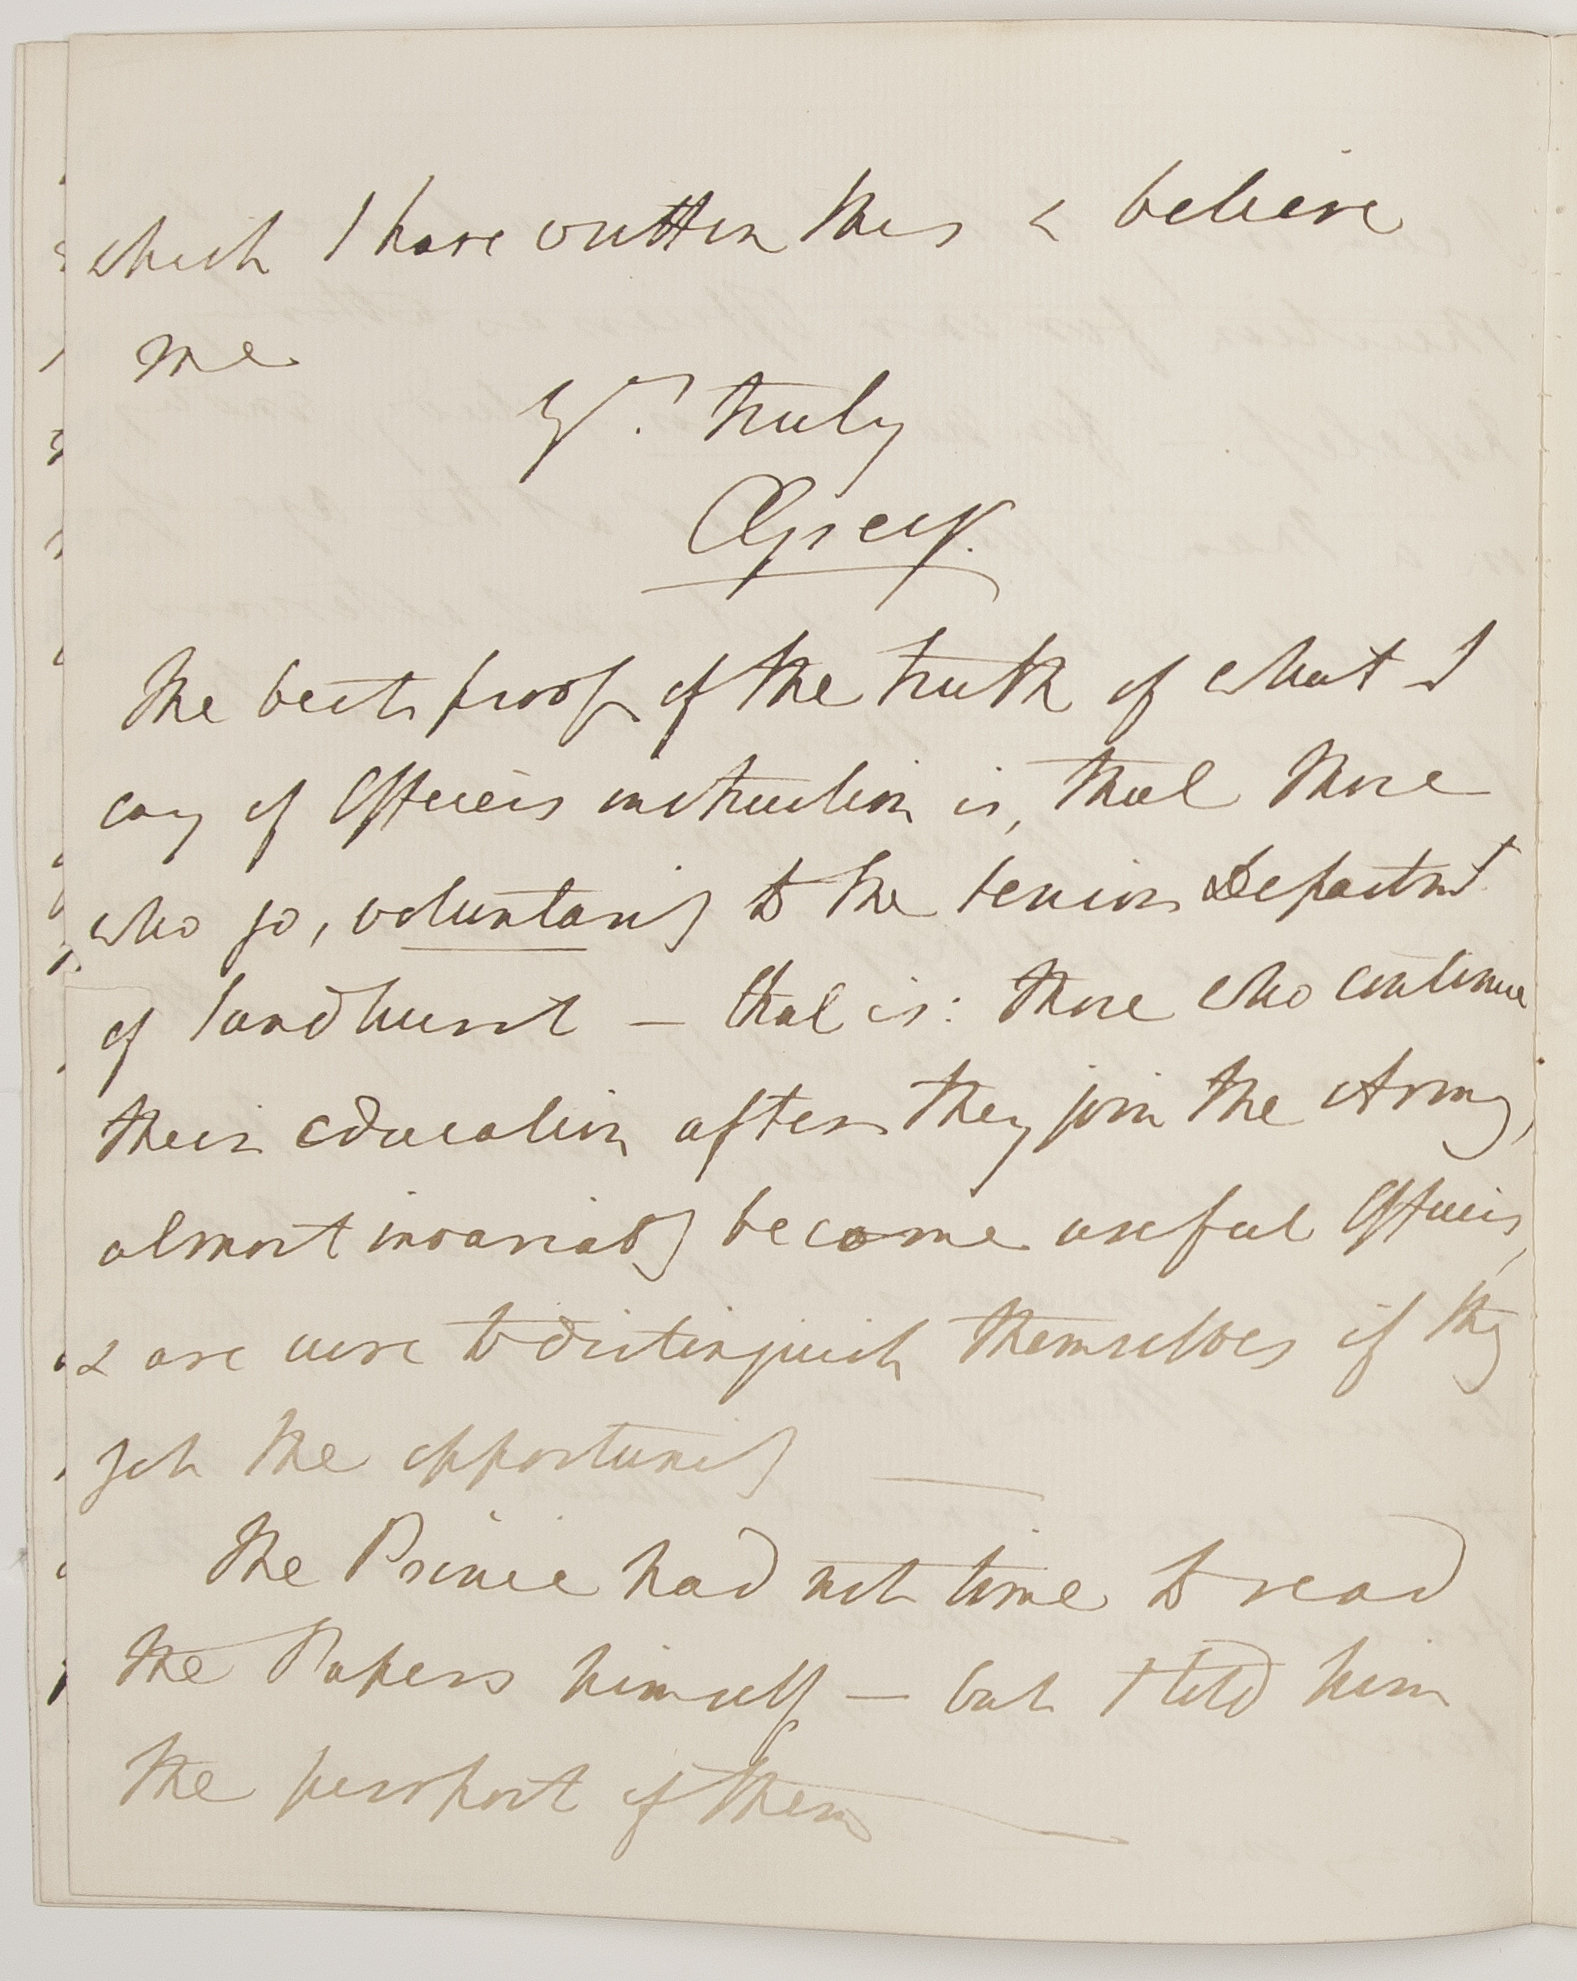 which I have written this & believe
me
Yrs. truly
CGrey.
The best proof of the truth of what I
say of Officers instruction is, that those
who go, voluntarily to the Senior Departmt.
of Sandhurst – that is: those who continue
their education after they join the Army,
almost invariably become useful Officers,
& are sure to distinguish themselves if they
get the opportunity —
The Prince had not time to read
the Papers himself – but I told him
the purport of them —